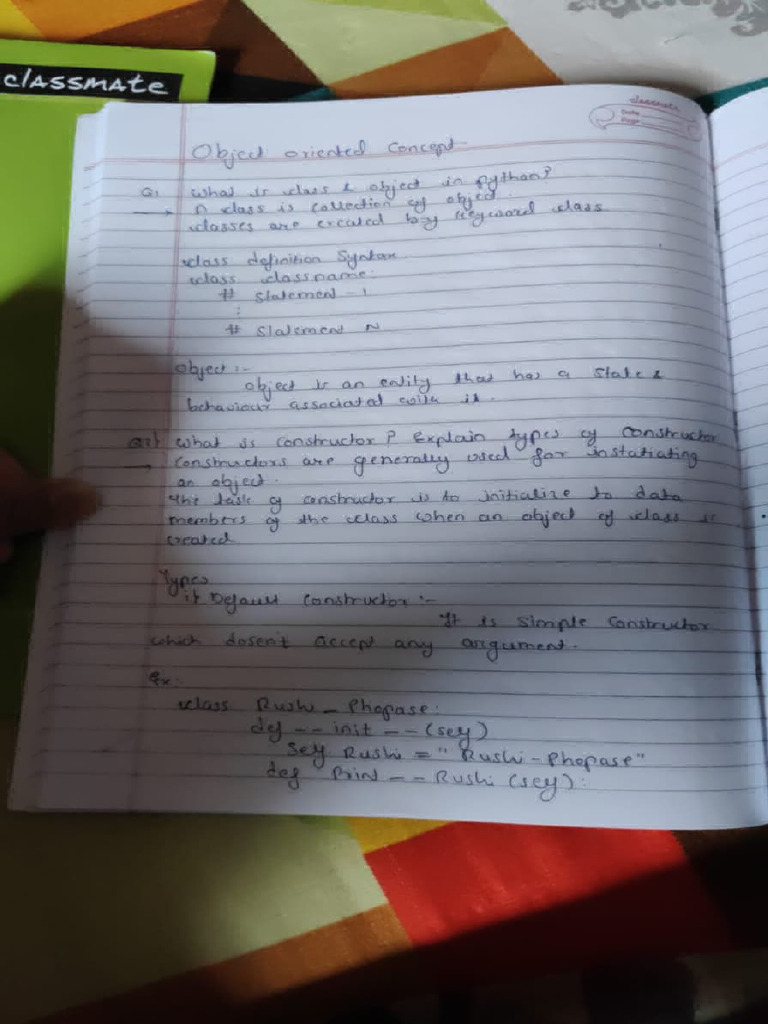 classmate
classmate
Date
Page
Object oriented Concept
Q1 What is class & object in python?
→ A class is collection of object.
classes are created by keyword class
class definition Syntax
class classname:
# Statement - 1
:
# Statement N
Object :-
object is an entity that has a state &
behaviour associated with it.
Q2) What is constructor? Explain types of constructor
→ Constructors are generally used for instatiating
an object.
The task of constructor is to initialize to data
members of the class when an object of class is
created
Types
i) Default constructor :-
It is simple constructor
which dosen't accept any argument.
Ex:
class Rushi _ Phopase:
def - - init - - (self)
self Rushi = "Rushi - Phopase"
def Print - - Rushi (self):